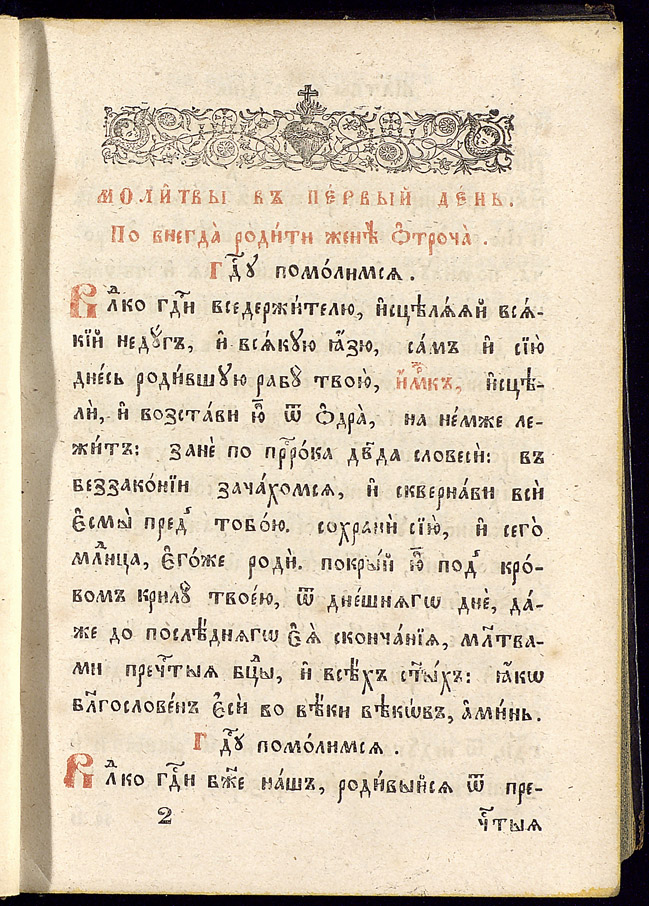 МОЛИ́ТВЫ ВЪ ПЕ́РВЫЙ ДЕ́НЬ.
По внегда̀ роди́ти женѣ̀ ѻ҆троча̀.
Гдⷭ҇ꙋ помо́лимсѧ.
Влⷣко гдⷭ҇и вседержи́телю, и҆сцѣлѧ́ѧй всѧ́-
кїй недꙋ́гъ, и҆ всѧ́кꙋю ꙗ҆́зю, са́мъ и҆ сїю̀
дне́сь роди́вшꙋю рабꙋ̀ твою̀, и҆́м҃къ, и҆сцѣ-
лѝ, и҆ возста́ви ю҆̀ ѿ ѻ҆дра̀, на не́мже ле-
жи́тъ: занѐ по прⷪ҇ро́ка дв҃да словесѝ: въ
беззако́нїи зача́хомсѧ, и҆ скверна́ви всѝ
є҆смы̀ пред̾ тобо́ю. сохранѝ сїю̀, и҆ сего̀
млⷣнца, є҆го́же родѝ. покры́й ю҆̀ под̾ кро́-
вомъ крилꙋ̀ твоє́ю, ѿ дне́шнѧгѡ днѐ, да́-
же до послѣ́днѧгѡ є҆ѧ̀ сконча́нїѧ, мл҃тва-
ми пречⷭ҇тыѧ бцⷣы, и҆ всѣ́хъ ст҃ы́хъ: ꙗ҆́кѡ
блгⷭ҇ослове́нъ є҆сѝ во вѣ́ки вѣкѡ́въ, а҆ми́нь.
Гдⷭ҇ꙋ помо́лимсѧ.
Влⷣко гдⷭ҇и бж҃е на́шъ, роди́выйсѧ ѿ пре-
2 чⷭ҇тыѧ